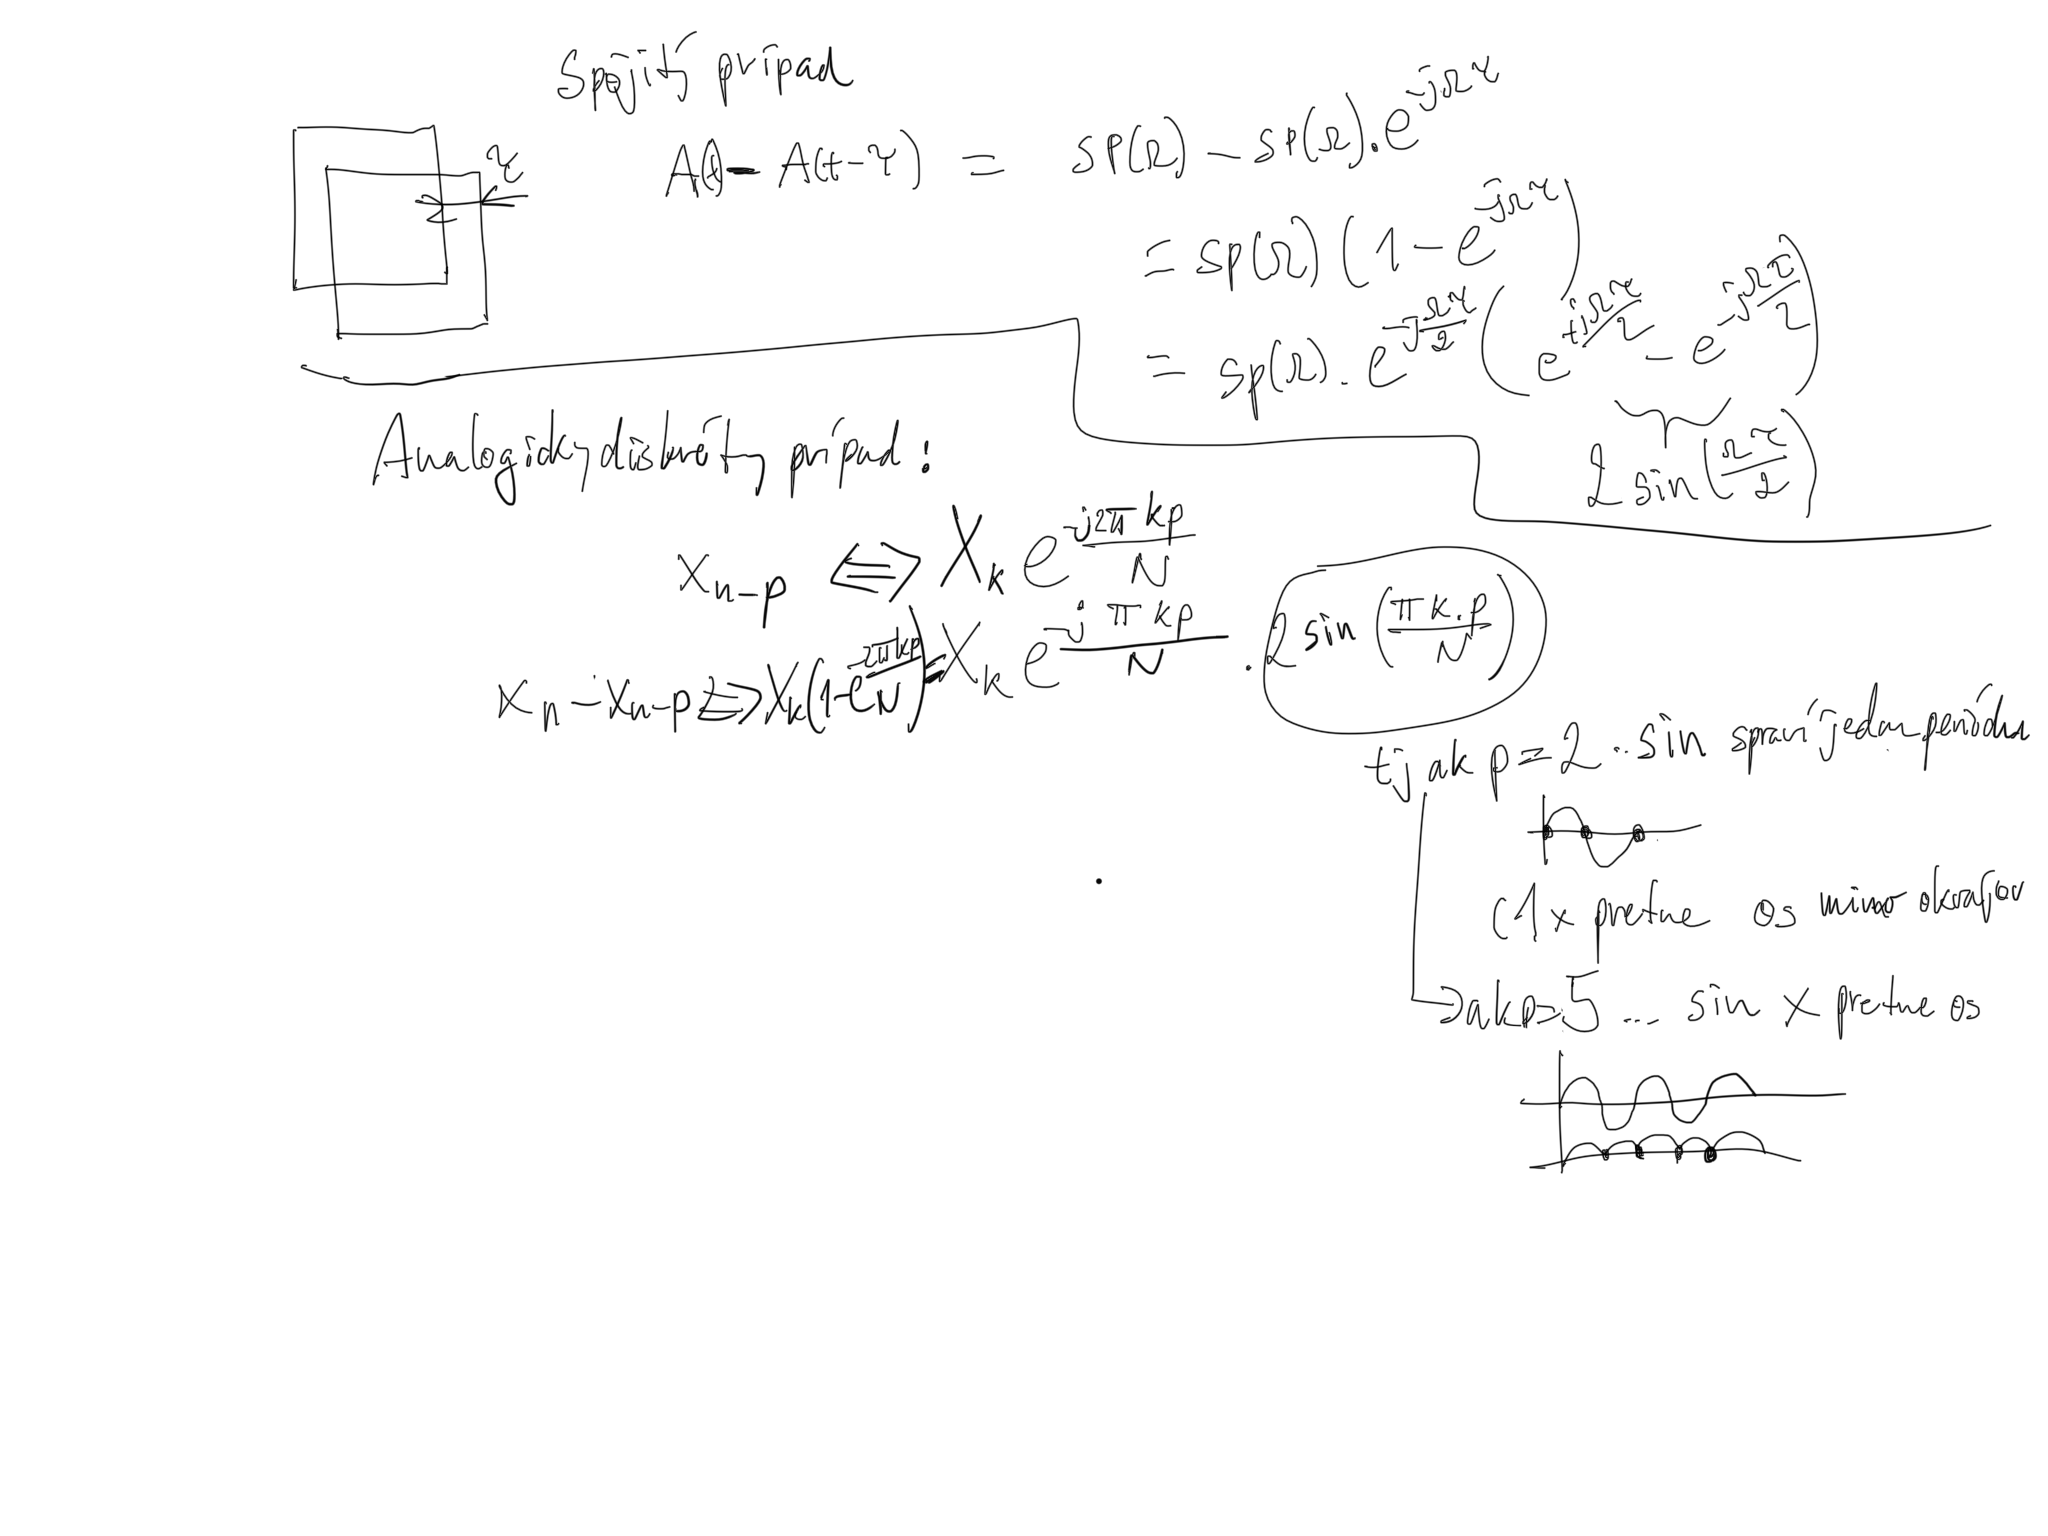 Spojitý prípad
τ
A(t) - A(t-τ) = sp(Ω) - sp(Ω).e^{-jΩτ}
= sp(Ω) (1 - e^{-jΩτ})
= sp(Ω) . e^{-jΩτ/2} (e^{+jΩτ/2} - e^{-jΩτ/2})
2 sin(Ωτ/2)
Analogicky diskrétny prípad :
x_{n-p} <=> X_k e^{-j2πkp/N}
x_n - x_{n-p} <=> X_k(1-e^{-2πkp/N}) = X_k e^{-jπkp/N} . 2 sin (πk.p/N)
tj ak p = 2 .. sin spraví jednu periódu
(1x pretne os mimo okrajov
→ ak p=5 ... sin x pretne os